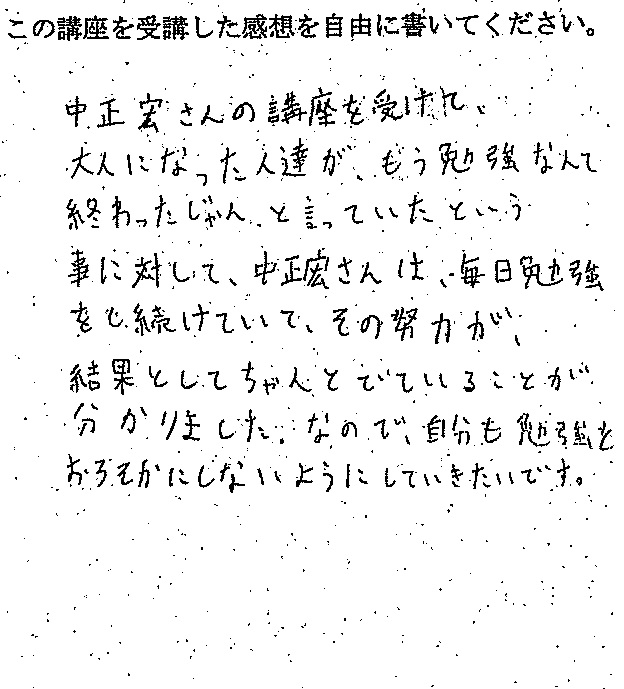 この講座を受講した感想を自由に書いてください。
中正宏さんの講座を受けて、
大人になった人達が、もう勉強なんて
終わったじゃん、と言っていたという
事に対して、中正宏さんは、毎日勉強
をし続けていて、その努力が、
結果としてちゃんとでていることが
分かりました。なので、自分も勉強を
おろそかにしないようにしていきたいです。